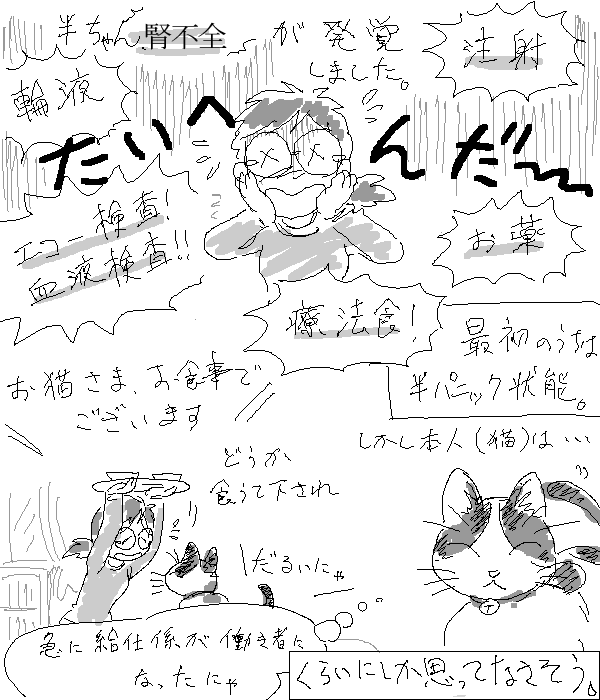 半ちゃん腎不全が発覚
しました。
注射
輪液
たいへんだ～
エコー検査!
血液検査!!
お薬
療法食!
最初のうちは
半パニック状態。
お猫さま、お食事で
ございます
どうか
食うて下され
しかし本人(猫)は…
だるいにゃ
急に給仕係が働き者に
なったにゃ
くらいにしか思ってなさそう。